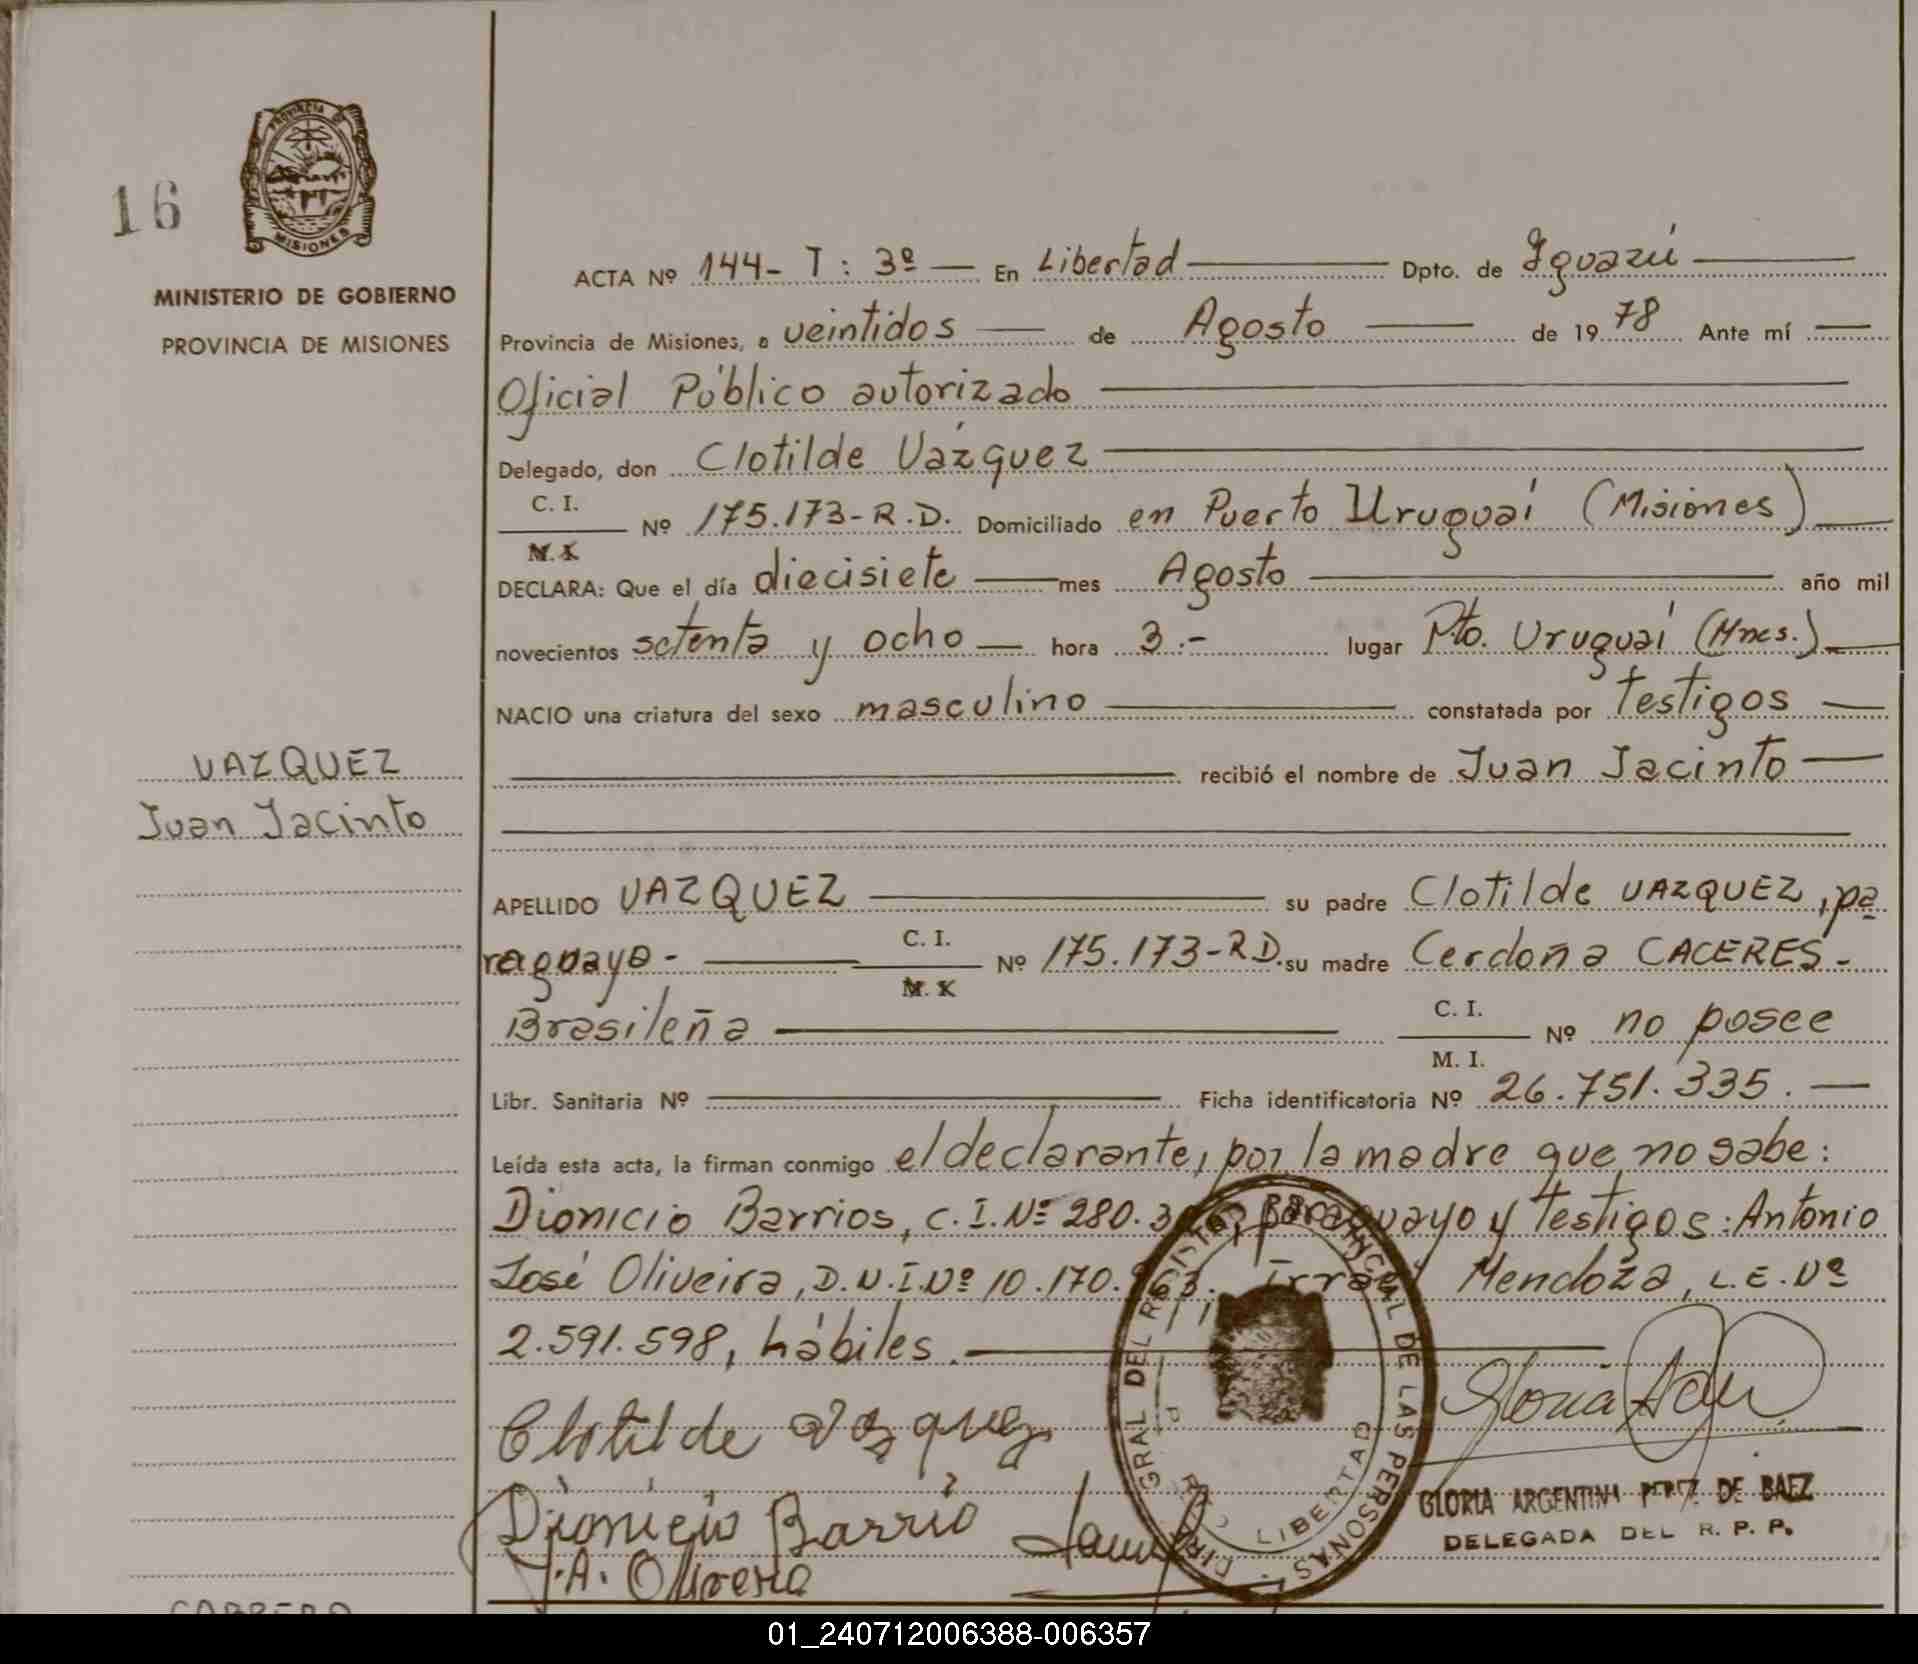 16
PROVINCIA DE
MISIONES
MINISTERIO DE GOBIERNO
PROVINCIA DE MISIONES
ACTA Nº 144- T: 3º — En Libertad — Dpto. de Iguazú
Provincia de Misiones, a veintidos — de Agosto — de 1978 Ante mí —
Oficial Público autorizado
Delegado, don Clotilde Vázquez
C. I.
Nº 175.173-R.D. Domiciliado en Puerto Uruguaí (Misiones)
DECLARA: Que el día diecisiete — mes Agosto — año mil
novecientos setenta y ocho — hora 3.- lugar Pto. Uruguaí (Mnes.)
NACIO una criatura del sexo masculino — constatada por testigos —
recibió el nombre de Juan Jacinto —
VAZQUEZ
Juan Jacinto
APELLIDO VAZQUEZ — su padre Clotilde VAZQUEZ, pa
raguayo - — C. I. Nº 175.173-R.D. su madre Cerdoña CACERES-
Brasileña — C. I. M. I. Nº no posee
Libr. Sanitaria Nº — Ficha identificatoria Nº 26.751.335. —
Leída esta acta, la firman conmigo el declarante, por la madre que no sabe:
Dionicio Barrios, C.I.Nº 280. paraguayo y testigos: Antonio
José Oliveira, D.N.I.Nº 10.170. Mendoza, L.E.Nº
2.591.598, hábiles.
Clotilde Vazquez
Dionicio Barrio
J.A. Oliveria
GRAL DEL REGISTRO PROVINCIAL DE LAS PERSONAS
LIBERTAD
GLORIA ARGENTINA PEREZ DE BAEZ
DELEGADA DEL R. P. P.
01_240712006388-006357